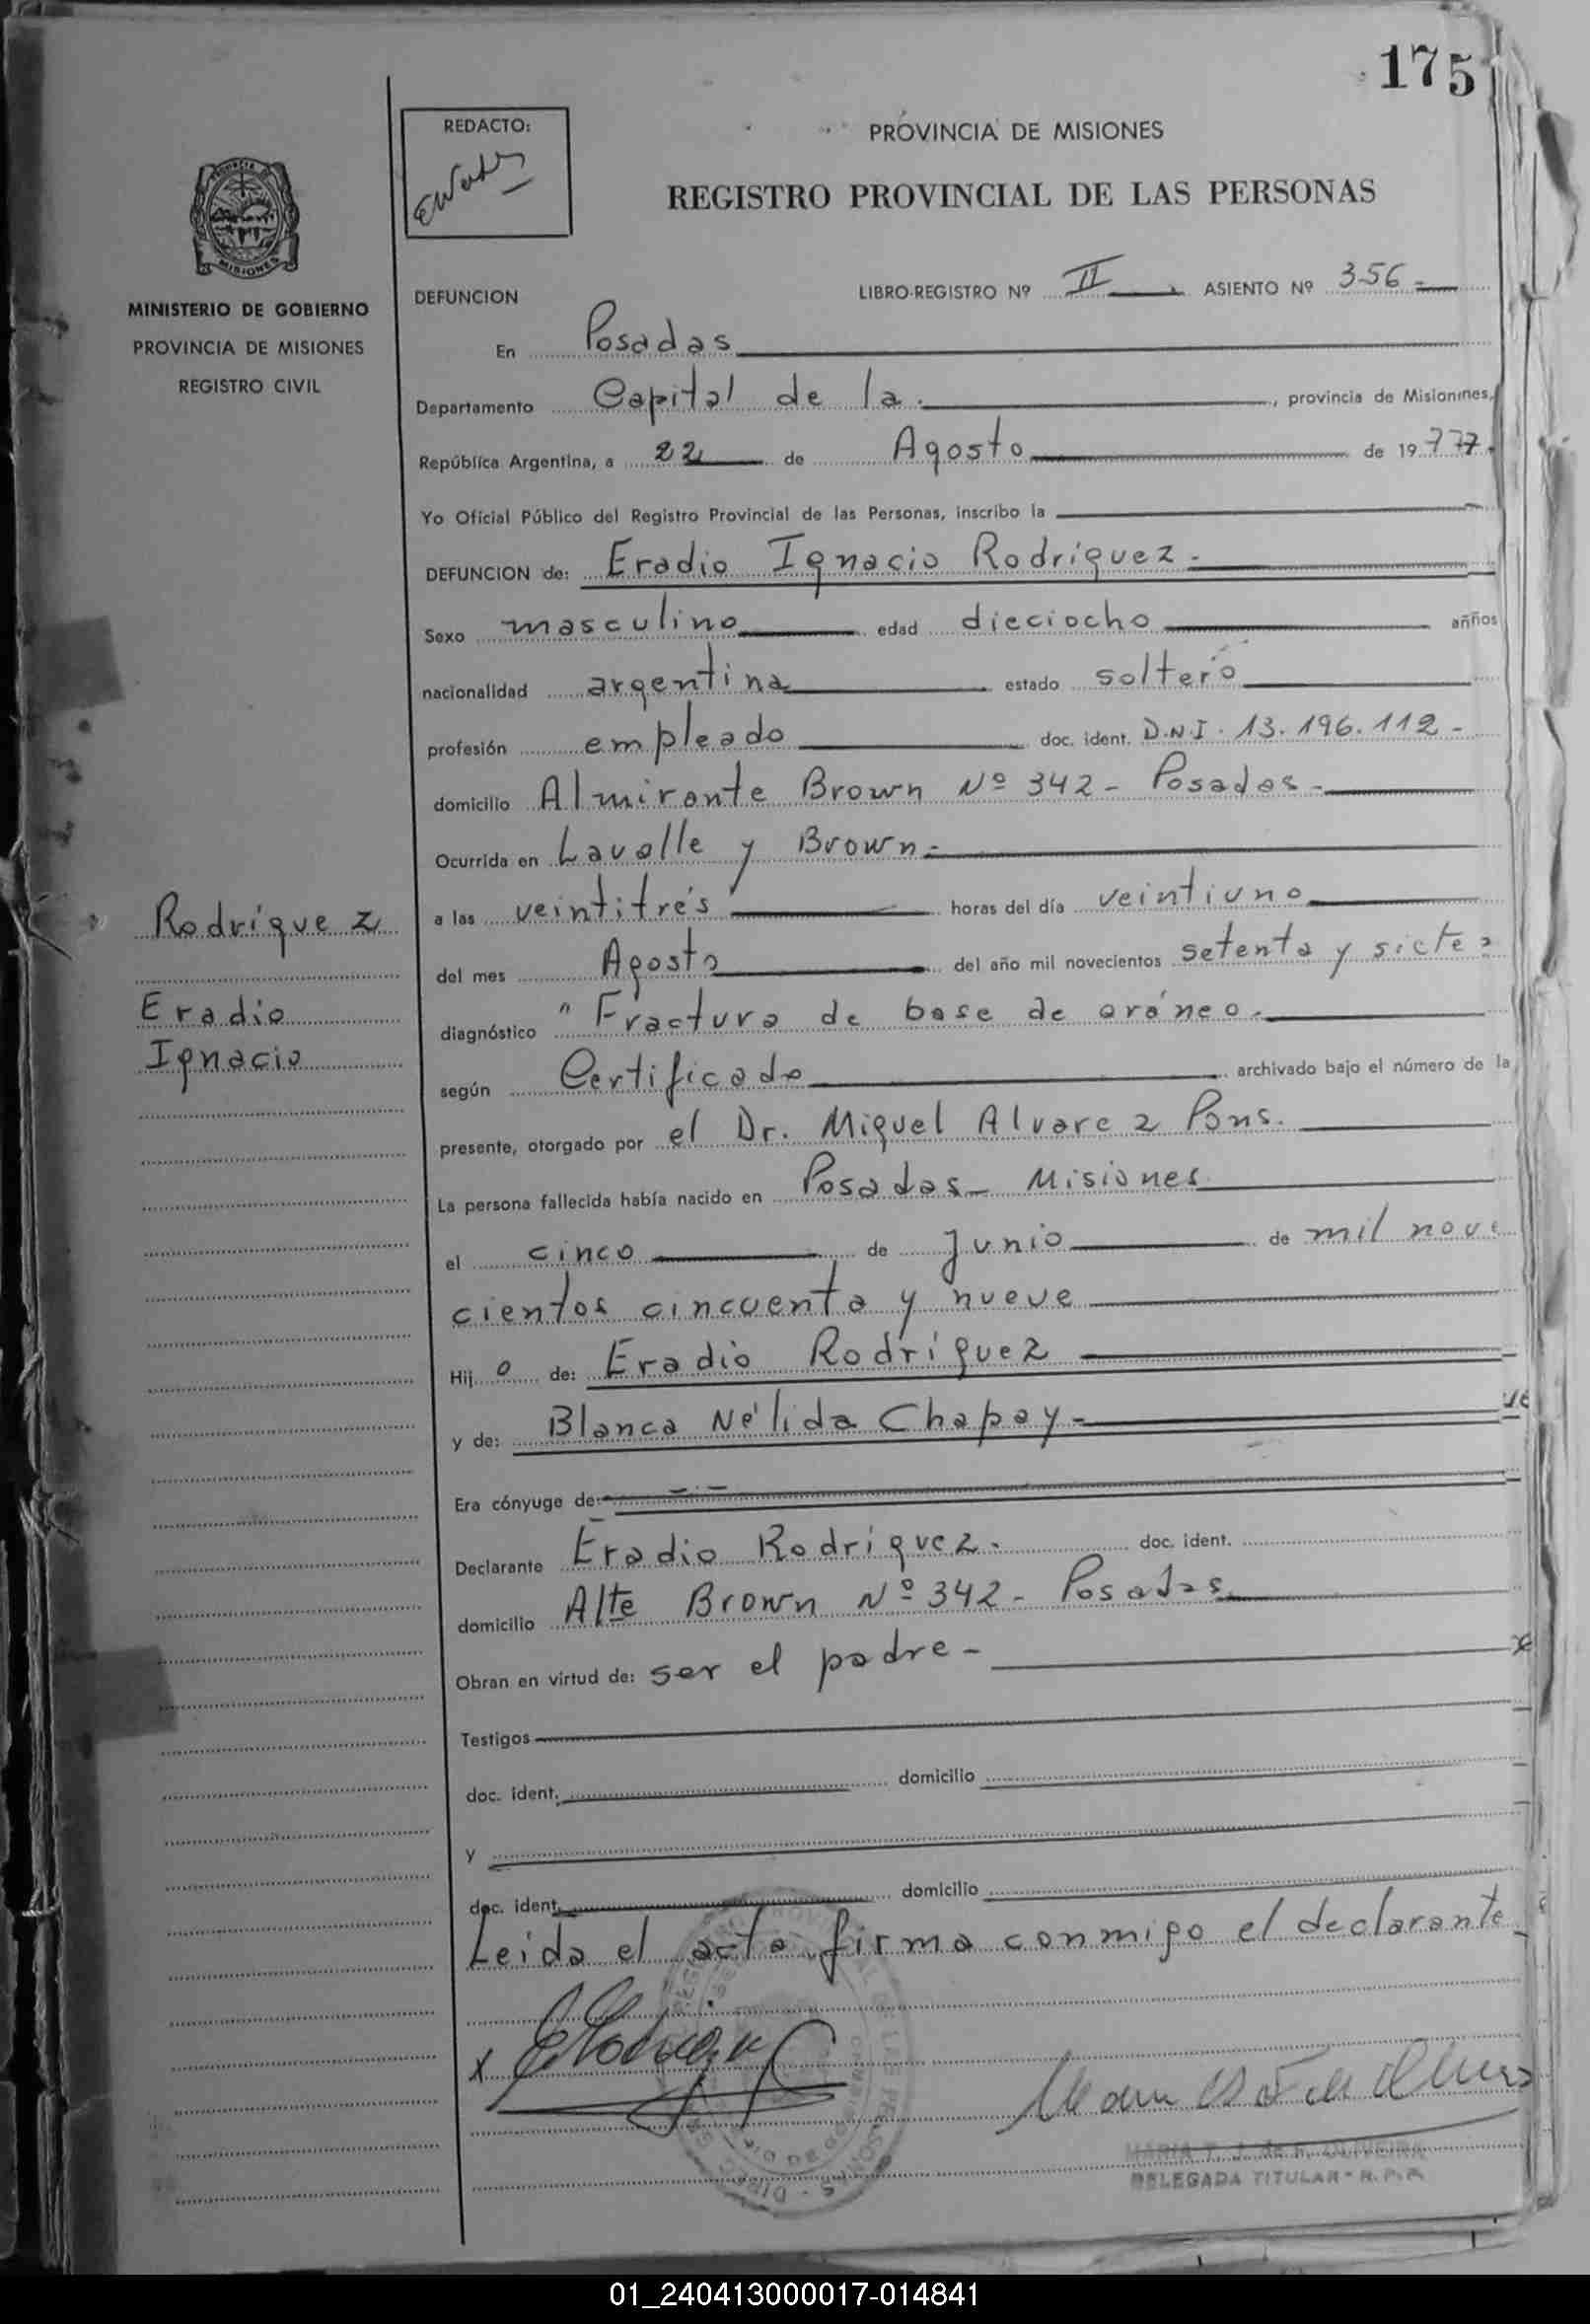 175
REDACTO:
PROVINCIA DE MISIONES
REGISTRO PROVINCIAL DE LAS PERSONAS
MINISTERIO DE GOBIERNO
PROVINCIA DE MISIONES
REGISTRO CIVIL
DEFUNCION LIBRO-REGISTRO Nº II ASIENTO Nº 356-
En Posadas
Departamento Capital de la , provincia de Misionines,
República Argentina, a 22 de Agosto de 19 777.
Yo Oficial Público del Registro Provincial de las Personas, inscribo la
DEFUNCION de: Eradio Ignacio Rodríguez-
Sexo masculino edad dieciocho aññios
nacionalidad argentina estado soltero
profesión empleado doc. ident. D.N.I. 13.196.112-
domicilio Almirante Brown Nº 342- Posadas-
Ocurrida en Lavalle y Brown-
a las veintitrés horas del día veintiuno
del mes Agosto del año mil novecientos setenta y siete
diagnóstico "Fractura de base de cráneo.
según Certificado archivado bajo el número de la
presente, otorgado por el Dr. Miguel Alvarez Pons.
La persona fallecida había nacido en Posadas- Misiones
el cinco de junio de mil nove
cientos cincuenta y nueve
Hij o de: Eradio Rodríguez
y de: Blanca Nélida Chapay-
Era cónyuge de:
Declarante Eradio Rodríguez. doc. ident.
domicilio Alte Brown Nº 342- Posadas
Obran en virtud de: ser el padre-
Testigos
doc. ident. domicilio
y
doc. ident. domicilio
Leida el acta firma conmigo el declarante
x
MARIA T. J. de F. OLIVEIRA
DELEGADA TITULAR - R. P. P.
Rodríguez
Eradio
Ignacio
01_240413000017-014841